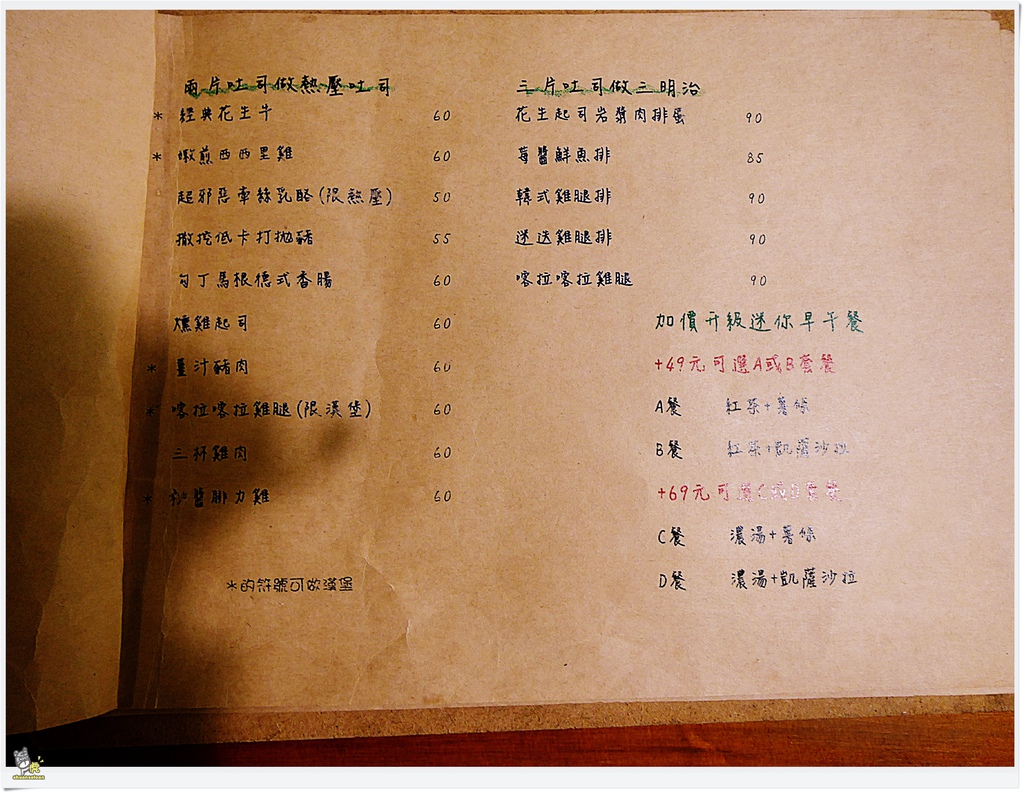 兩片吐司做熱壓吐司
* 經典花生牛 60
* 嫩煎西西里雞 60
超邪惡牽絲乳酪(限熱壓) 50
撒挖低卡打拋豬 55
勾丁馬根德式香腸 60
燻雞起司 60
* 薑汁豬肉 60
* 喀拉喀拉雞腿(限漢堡) 60
三杯雞肉 60
* 醬腓力雞 60
*的符號可做漢堡
三片吐司做三明治
花生起司岩漿肉排蛋 90
莓醬鮮魚排 85
韓式雞腿排 90
迷迭雞腿排 90
喀拉喀拉雞腿 90
加價升級迷你早午餐
+49元可選A或B套餐
A餐 紅茶+薯條
B餐 紅茶+凱薩沙拉
+69元可選C或D套餐
C餐 濃湯+薯條
D餐 濃湯+凱薩沙拉